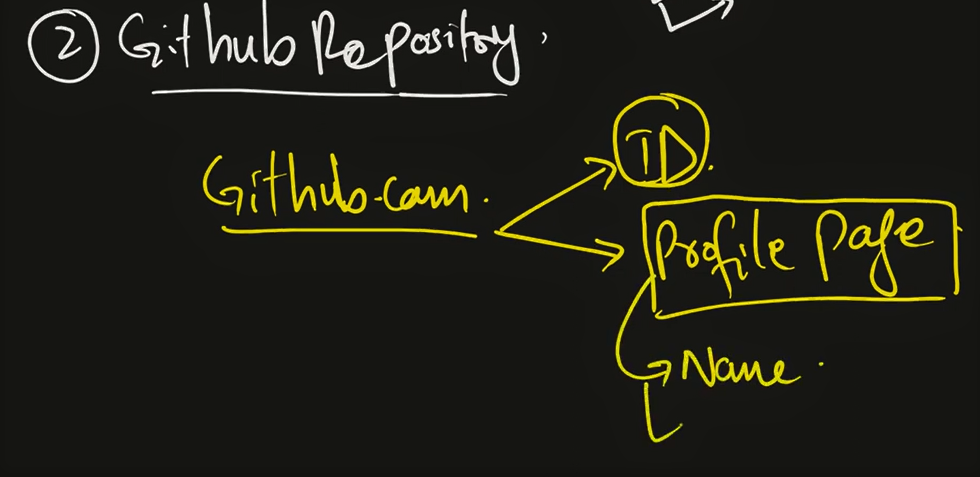 ② Github Repository
Github.com.
ID.
Profile Page
Name.